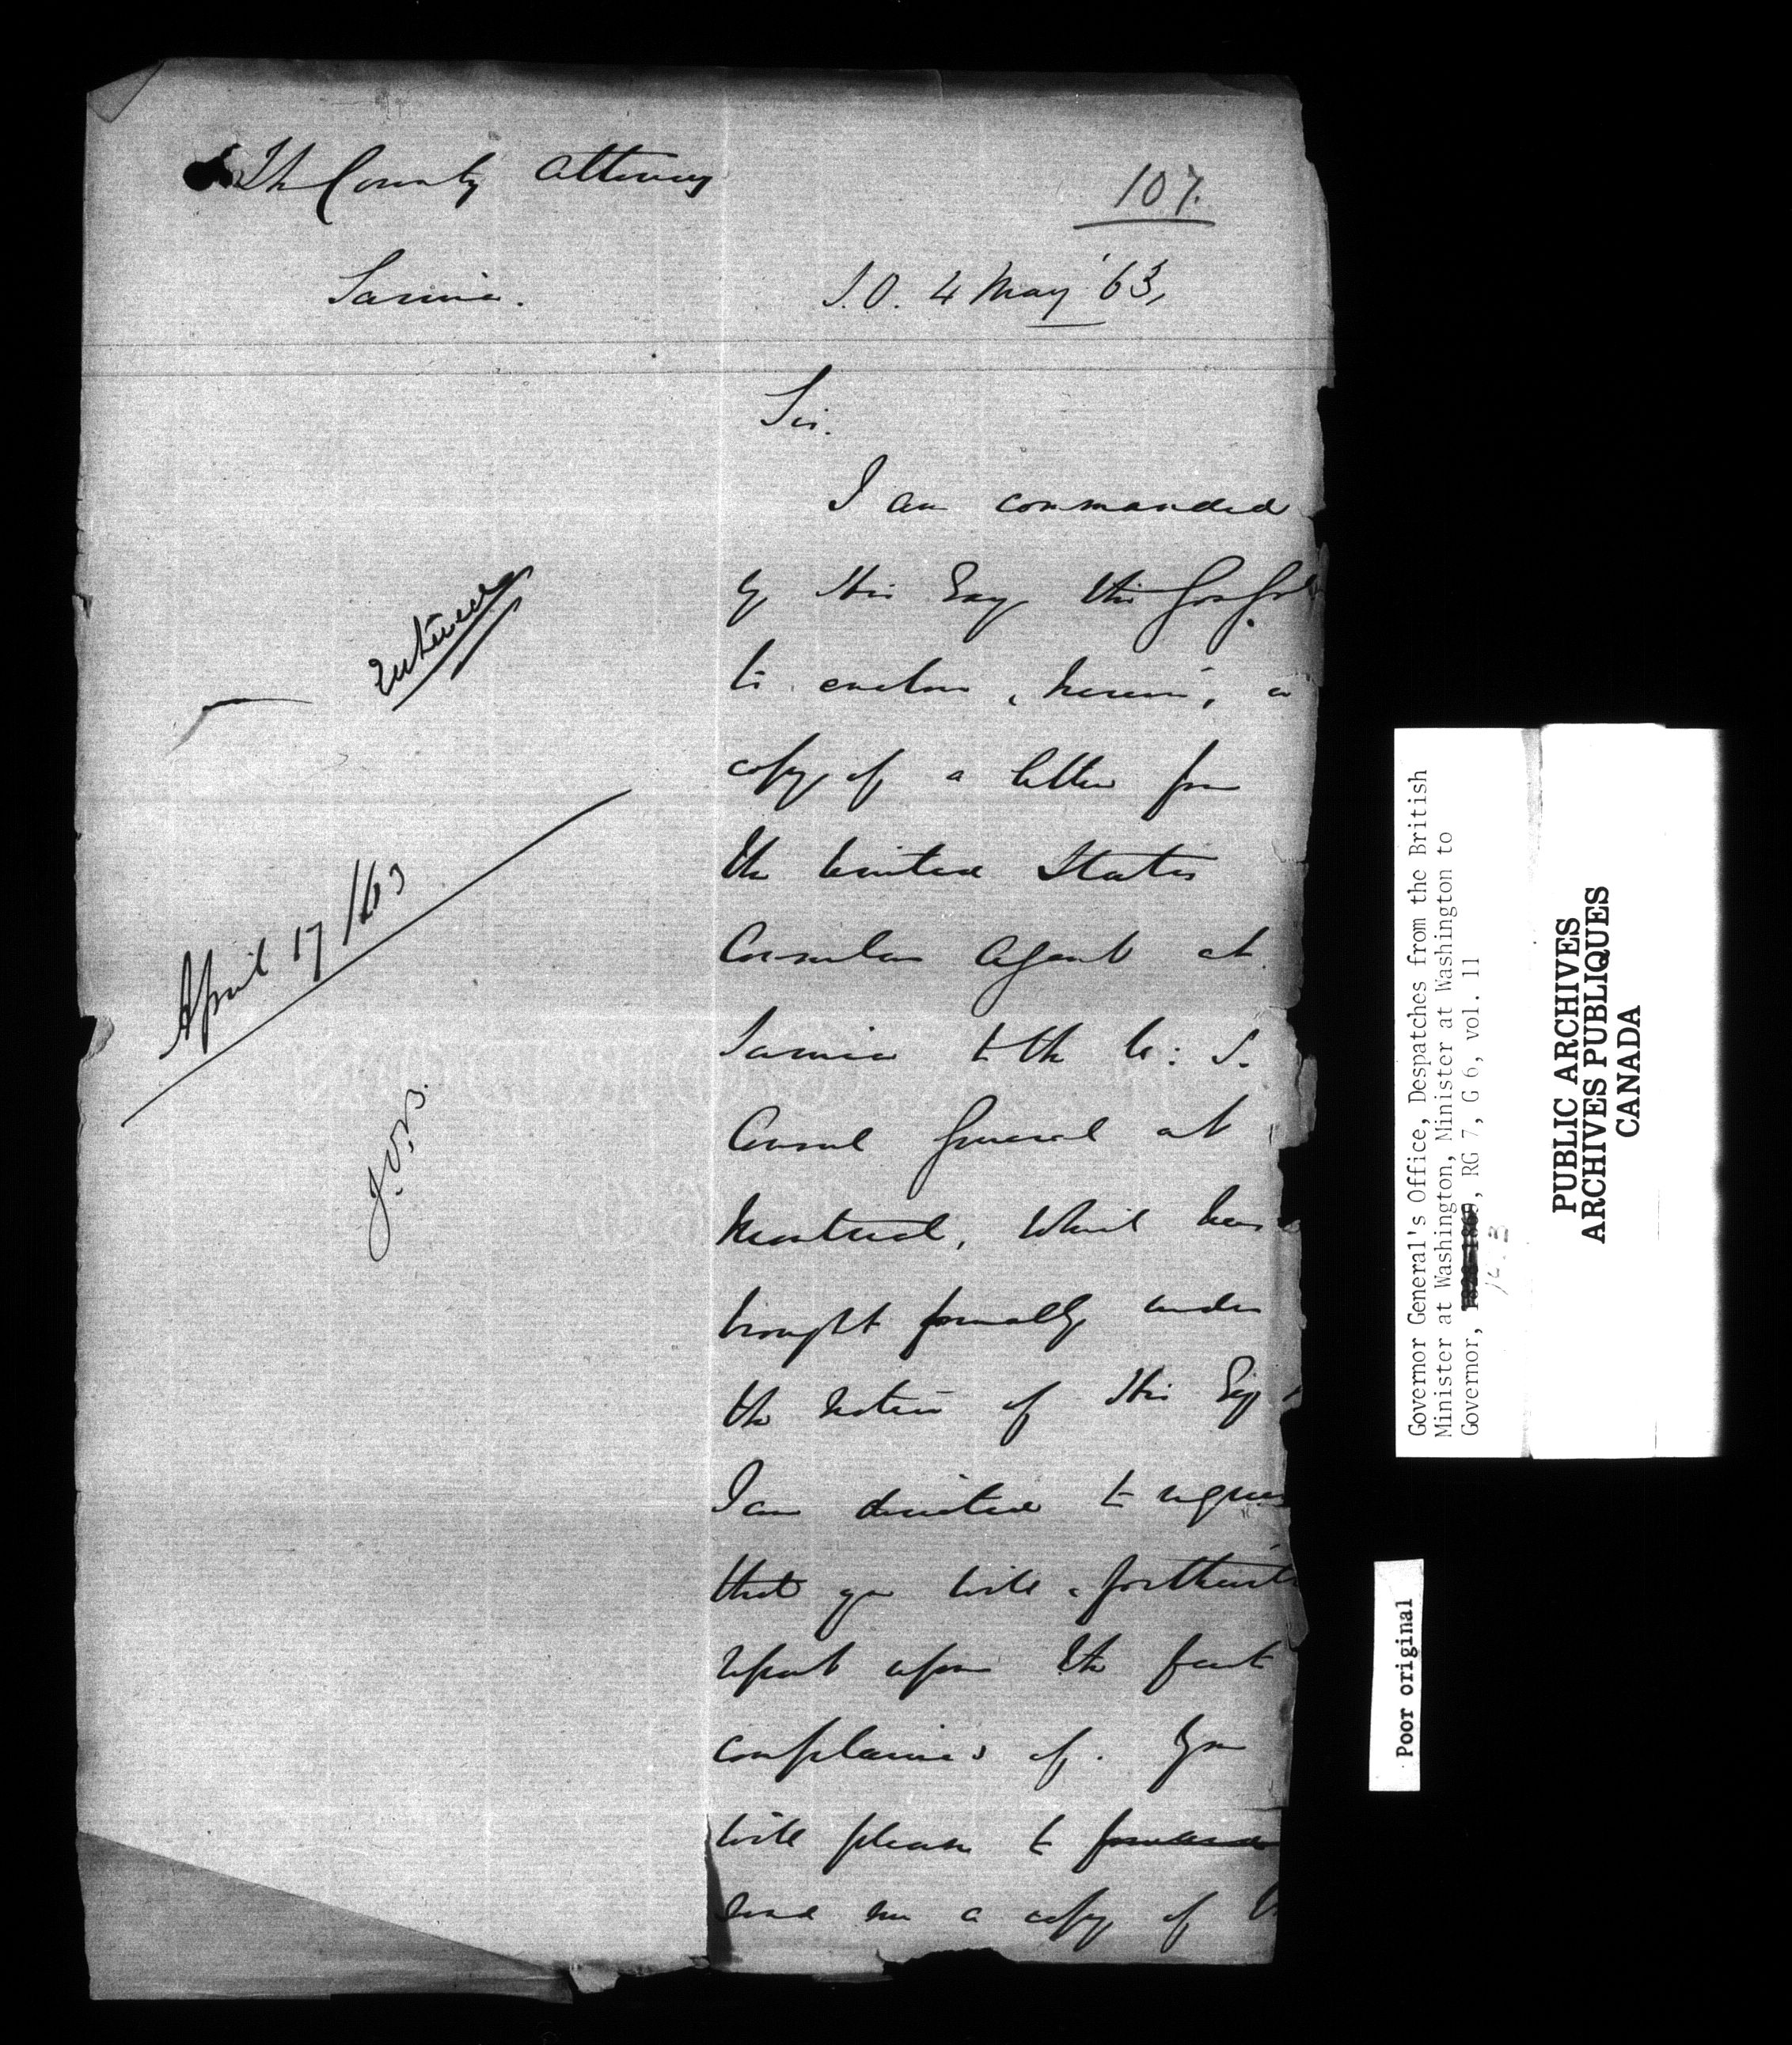 The County Attorney
107.
Sarnia.
S.O. 4 May '63,
Sir.
I am commanded
by His Excy the Gov Genl
to enclose, herein, a
copy of a letter from
the United States
Consular Agent at
Sarnia to the U: S.
Consul General at
Montreal, which has
brought formally under
the notice of His Excy
I am directed to request
that you will forthwith
report upon the fact
complained of. You
will please to forward
send me a copy of
Entered
April 17/63
Governor General's Office, Despatches from the British
Minister at Washington, Minister at Washington to
Governor, RG 7, G 6, vol. 11
PUBLIC ARCHIVES
ARCHIVES PUBLIQUES
CANADA
Poor original